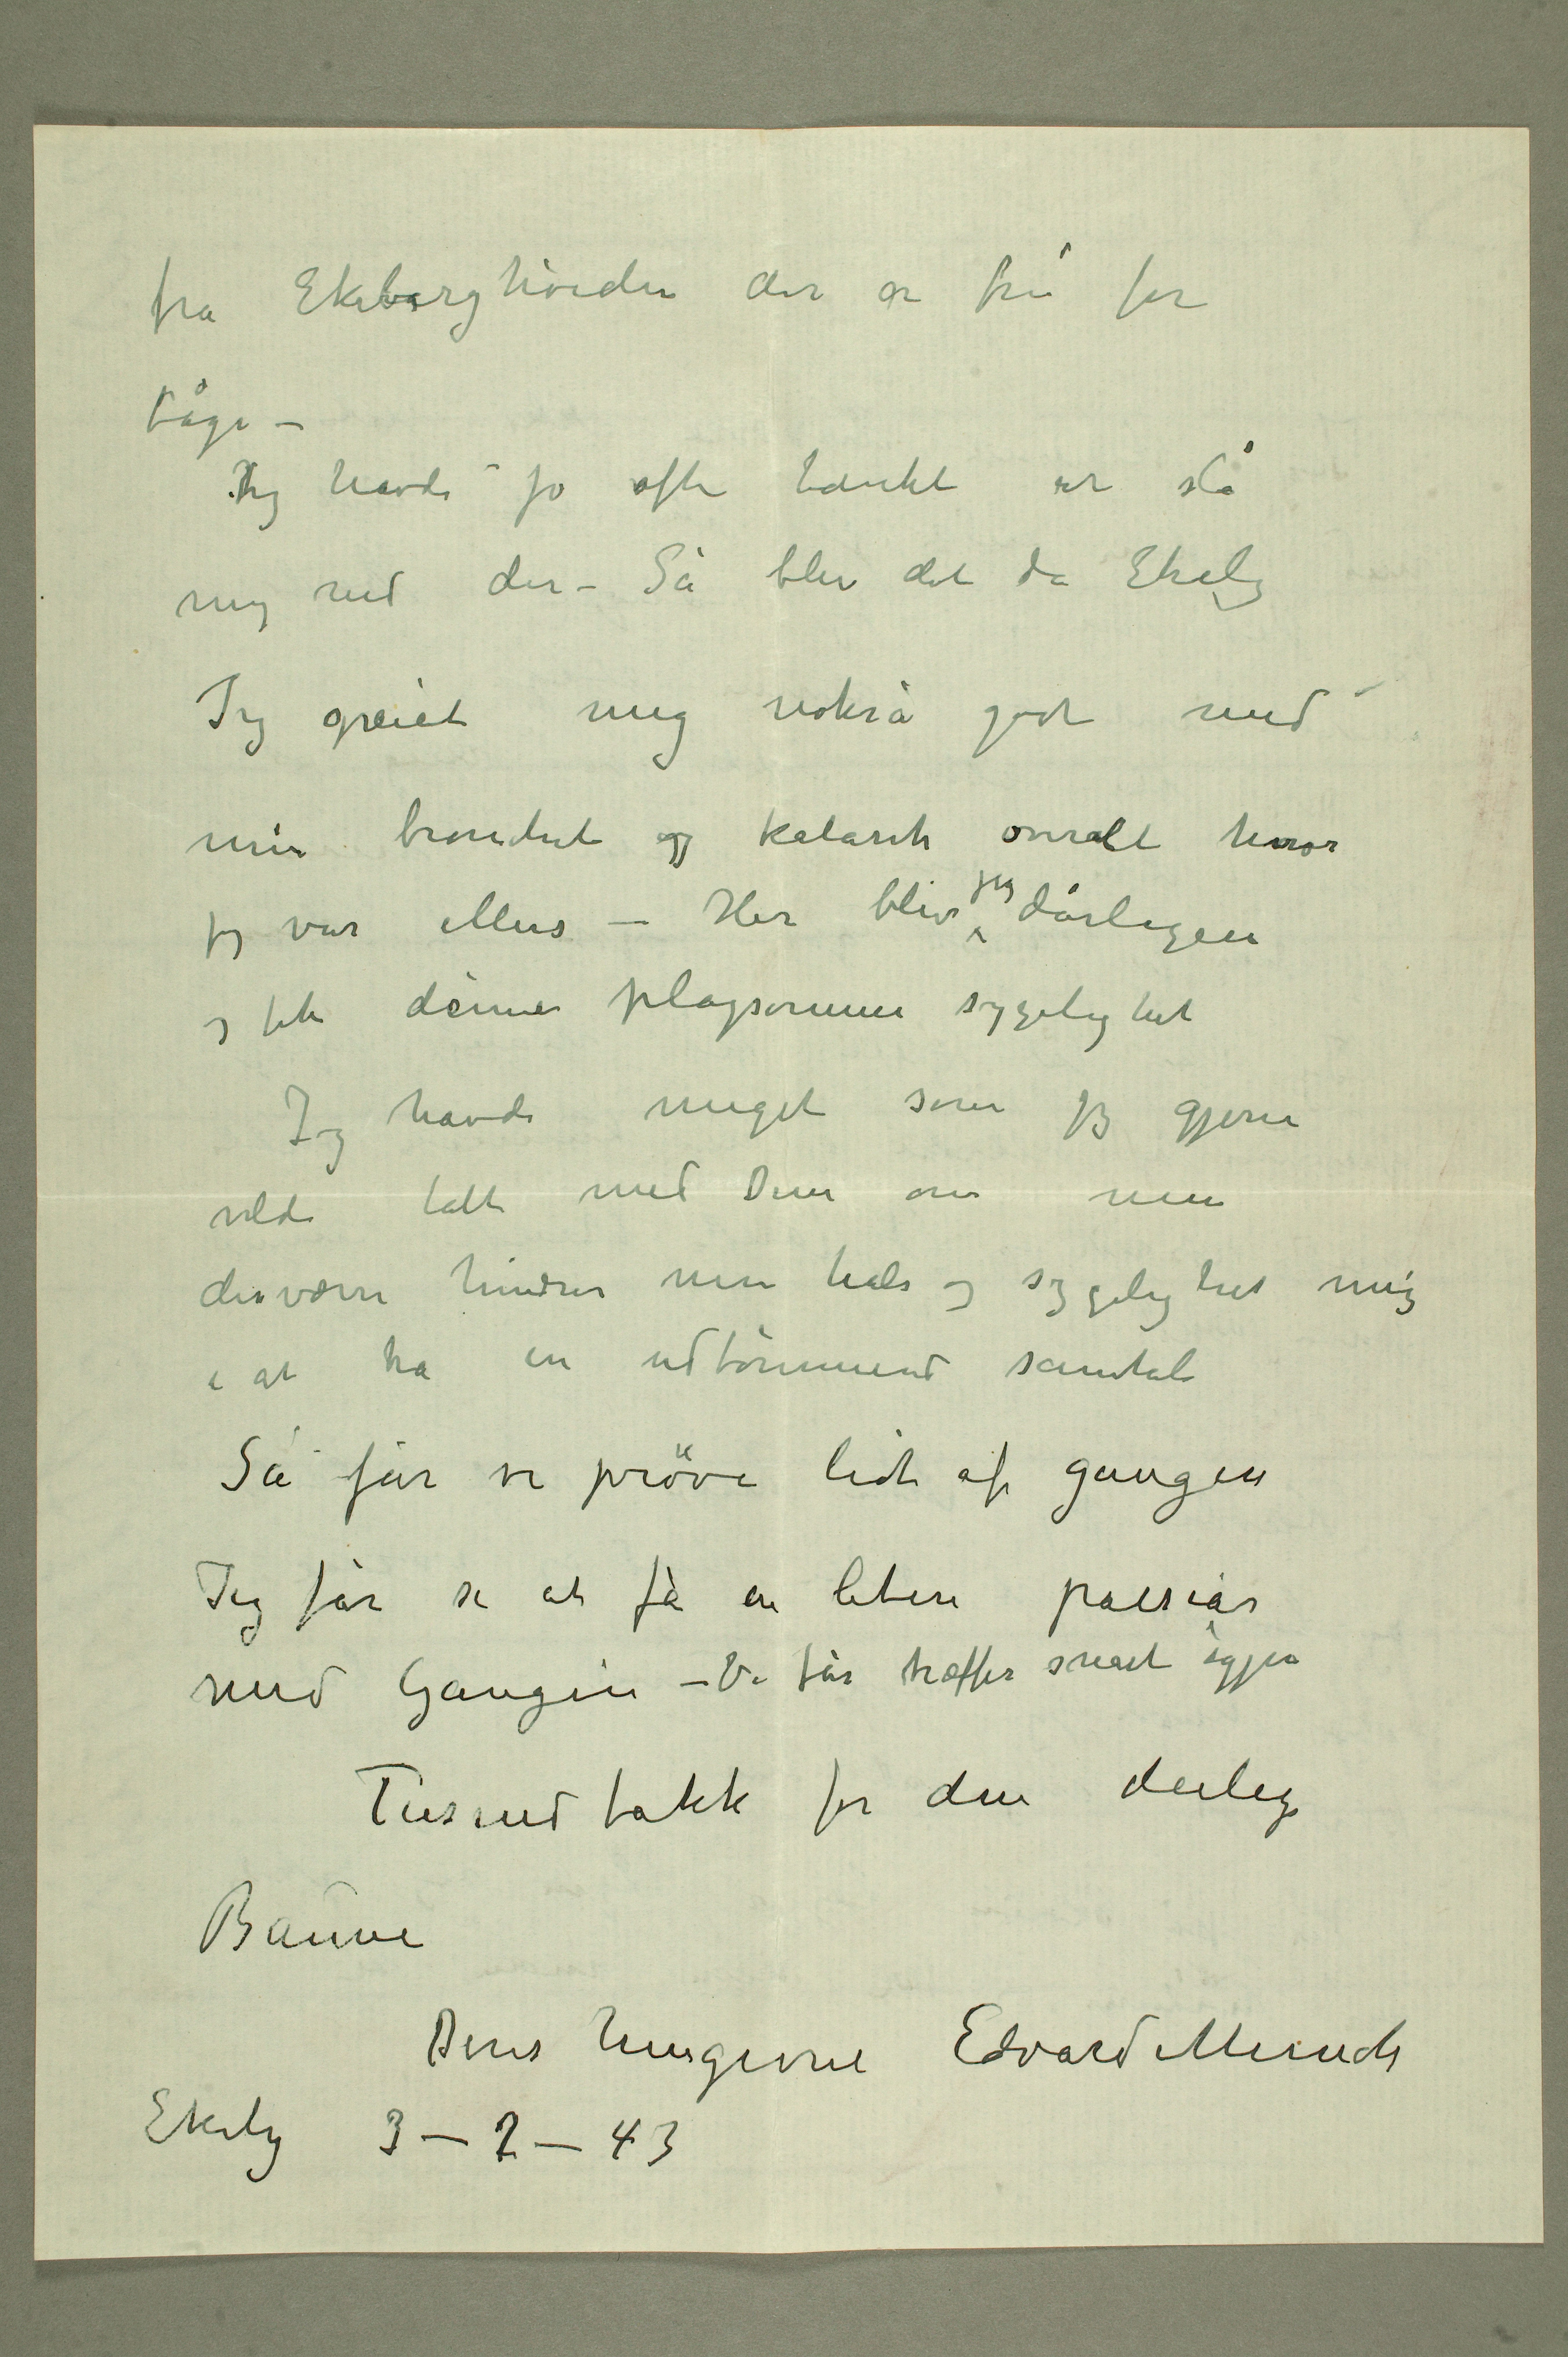 fra Ekeberghöiden der er fri for
tåge –
Jeg havde jo ofte tænkt at slå
mig ned der – Så blev det da Ekely
Jeg greiet mig nokså godt med
min bronchit og katarrh overalt hvor
jeg var ellers – Her blev jeg dårligere
og fik denne plagsomme sygelighet
Jeg havde meget som jeg gjerne
vilde talt med Dem om men
desværre hindrer min hals og sygelighet mig
i at ha en udtömmende samtale
Så får vi pröve lidt af gangen
Jeg får se at få en liten passiar
med Gaugin – Vi får træffes snart igjen
Tusend takk for den deilige
Baune
Deres hengivne Edvard Munch
Ekely 3 – 2 – 43